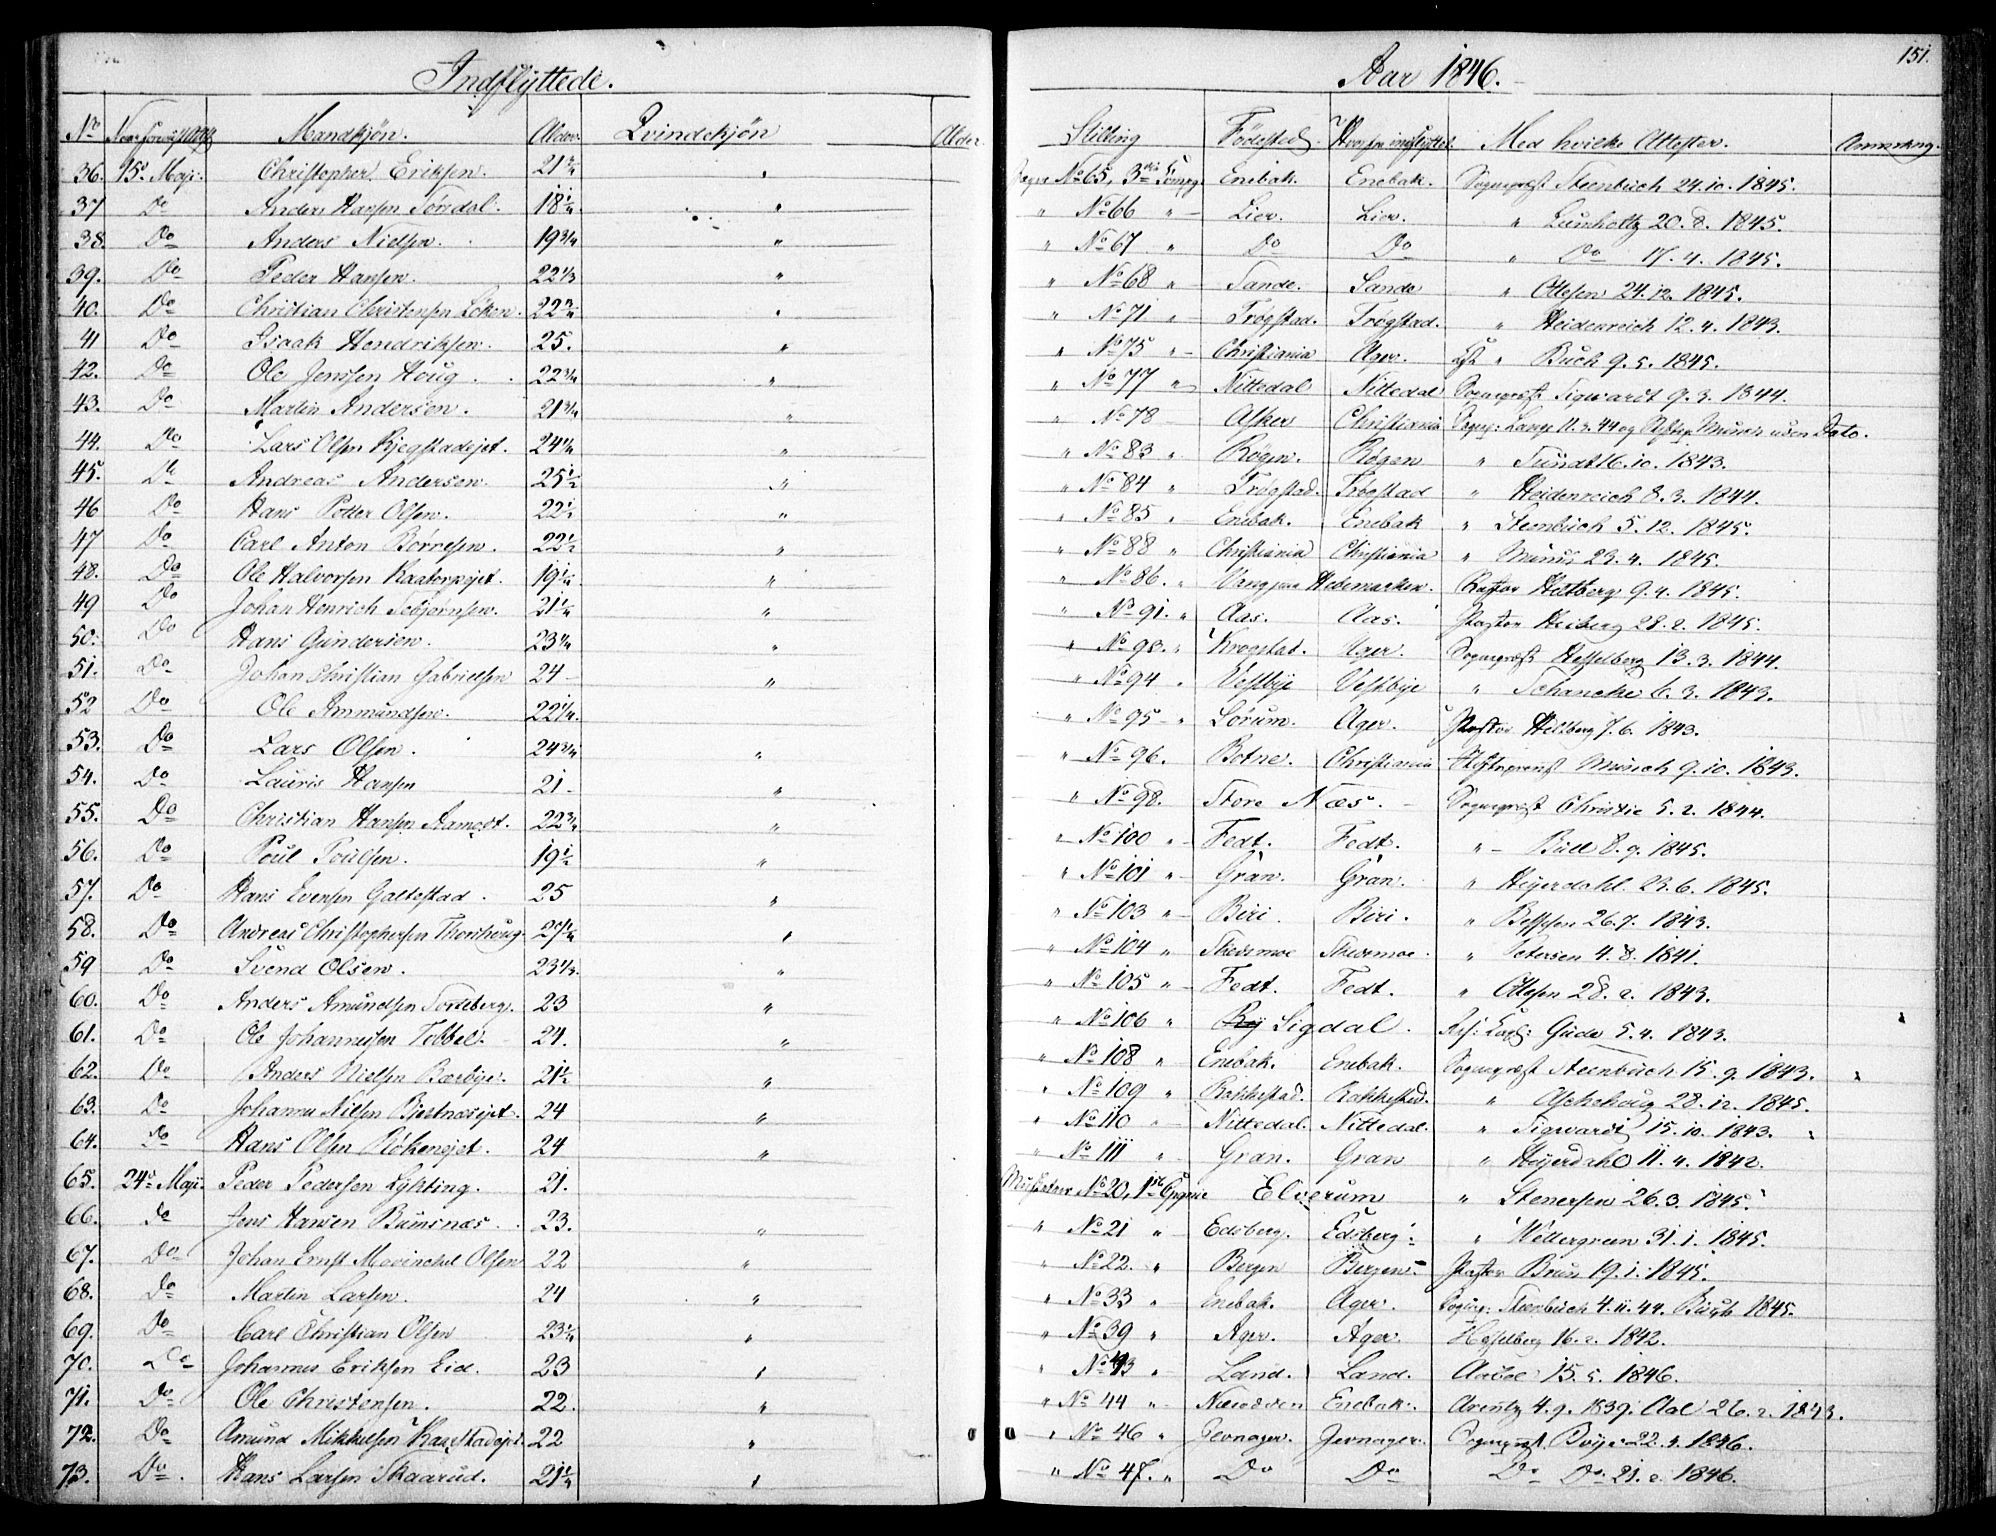 151.
Indflyttede.
Aar 1846.
No Mandkjön. Alder. Qvindekjön Alder.
Stilling Födested. Med hvilke Attester. Anmærkng.
36. 15de Maji. Christopher Eriksen. 21 3/4 " No 65, 3die Enebak. Enebak. Sognepræst Steenbuch 24.10.1845.
37 Do Anders Hansen 18 1/4 " " No 66 " Lier. Lier. " 20.8.1845.
38. Do Anders Nielsen. 19 3/4 " " No 67 " Do Do " Do 17.4.1845.
39. Do Peder Hansen. 22 1/3 " " No 68 " Sande. Sande " Ottesen 24.12.1845.
40. Do Christian Christensen Löken. 22 3/4 " " No 71 " Trögstad. Trögstad. " Heidenreich 12.4.1843.
41 Do Isaak Hendriksen. 25. " " No 75 " Christiania Ager. " Buch 9.5.1845.
42. Do Ole Jenssen Houg. 22 3/4 " " No 77 " Nittedal Nittedal Sognepræst Sigwardt 9.3.1844.
43. Do Martin Andersen. 21 3/4 " " No 78 Asker Christiania Lange 11.2.44 og Munch uden Dato.
44. Do Lars Olsen 24 1/4 " " No 83 " Rögen. Rögen " Tundt 16.10.1843.
45. Do Andreas Andersen. 25 1/2 " " No 84 " Trögstad. Trögstad " Heidenreich 8.3.1844.
46 Do Hans Petter Olsen. 22 1/2 " " No 85 " Enebak. Enebak " Steenbuch 5.12.1845.
47 Do Carl Anton Borresen. 22 1/2 " " No 88 " Christiania Christiania " Munch 23.4.1845.
48. Do Ole Halvorsen 19 1/4 " " No 86. " Vang paa Hedemarken. Pastor Hiltberg 9.4.1845.
49 Do Johan Henrich Tobjörnsen. 21 1/4 " " No 91. " Aas. Aas. Pastor Heiberg 28.2.1845.
50. Do Hans Gundersen. 23 1/4 " " No 93. " Krogstad. Ager. Sognepræst Hesselberg 13.3.1844.
51. Do Johan Christian Gabrielsen 24 " " No 94 " Vestbye Vestbye " Schancke 6.3.1843.
52 Do Ole Ammundsen. 22 1/4. " No 95 " Sörum. Ager. Pastor 7.6.1843.
53. Do Lars Olsen. 24 3/4 " " No 96. Botne. Christiania Munch 9.10.1843.
54. Do Lauris Hansen 21 " " No 98. Store Næs. Sognepræst Christie 5.2.1844.
55. Do Christian Hansen Aamodt. 22 3/4 " " No 100 " Fedt. Fedt. " Bull 8.9.1845.
56. Do Poul Poulsen. 19 1/2 " " No 101 " Gran. Gran. " Heyerdahl 23.6.1845.
57. Do Hans Evensen Galtestad. 25 " " No 103 " Biri. Biri. " 26.7.1843.
58. Do Andreas Christophersen 27 1/4 " " No 104 " Skedsmoe Skedsmoe. " Petersen 4.8.1841.
59 Do Svend Olsen. 23 1/3. " " No 105 " Fedt. Fedt. " Ottesen 28.2.1843.
60. Do Anders Amundsen 23 " " No 106 " Sigdal. Gude 5.4.1843.
61. Do Ole Johannesen Tobbel. 24. " " No 108 " Enebak. Enebak. Sognepræst Steenbuch 15.9.1843.
62. Do Anders Nielsen Bærbye. 21 1/2 " " No 109 " Rakkestad. Rakkestad. " Aschehoug 28.12.1845.
63. Do Johannes Nilsen 24 " " No 110 " Nittedal. Nittedal. " Sigwardt 15.10.1843.
64. Do Hans Olsen 24 " " No 111 " Gran. Gran " Heyerdahl 11.4.1842.
65. 24de Maji. Peder Pedersen Lykting. 21. No 20, 1ste Elverum " Stenersen 26.3.1845.
66. Do Jens Hansen Bunesnæs. 23. " " No 21 " Edsberg. Edsberg. " Wettergreen 31.1.1845.
67. Do Johan Ernst Mowinckel Olsen 22 " " No 22. " Bergen Bergen. Pastor Brun 19.1.1845.
68. Do Martin Larsen. 24 " " No 33 " Enebak. Ager. Steenbuch 4.11.44. Buch 1845.
69. Do Carl Christian Olsen 23 1/4 " " No 39 " Ager. Ager. Hesselberg 16.2.1842.
70. Do Johannes Eriksen Eid. 23 " " No 43 " Land. Land. 15.5.1846.
71. Do Ole Christensen. 22. " " No 44 " Næsodden Enebak. Arentz 4.9.1839. Aal 26.2.1843.
72. Do Amund Mikkelsen 22 " " No 46 " Jevnager. Jevnager. Sognepræst 22.3.1846.
73. Do Hans Larsen Skaarud. 21 1/4 " " No 47. " Do Do Do Do 21.2.1846.